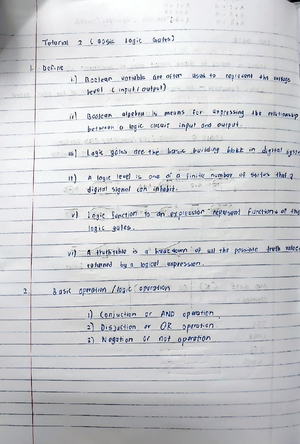 Tutorial 2 (Basic Logic Gates)
1. Define
i) Boolean variable are often used to represent the voltage
level (input / output)
ii) Boolean algebra is means for expressing the relationship
between a logic circuit input and output.
iii) Logic gates are the basic building block in digital system
iv) A logic level is one of a finite number of states that a
digital signal can inhabit.
v) Logic function is an expression represent functions of the
logic gates.
vi) A truth table is a breakdown of all the possible truth values
returned by a logical expression.
2. Basic operation / logic operation
1) Conjuction or AND operation
2) Disjuction or OR operation
3) Negation or not operation